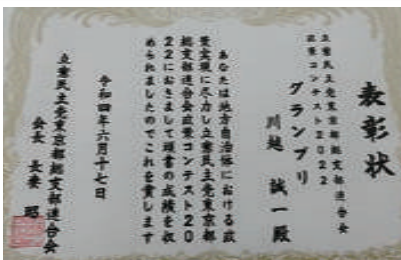 表彰状
立憲民主党東京都総支部連合会
政策コンテスト2022
グランプリ
川越 誠一殿
あなたは地方自治体における政
策実現に尽力し立憲民主党東京都
総支部連合会政策コンテスト20
22におきまして頭書の成績を収
められましたのでこれを賞します
令和四年六月十七日
立憲民主党東京都総支部連合会
会長 長妻 昭